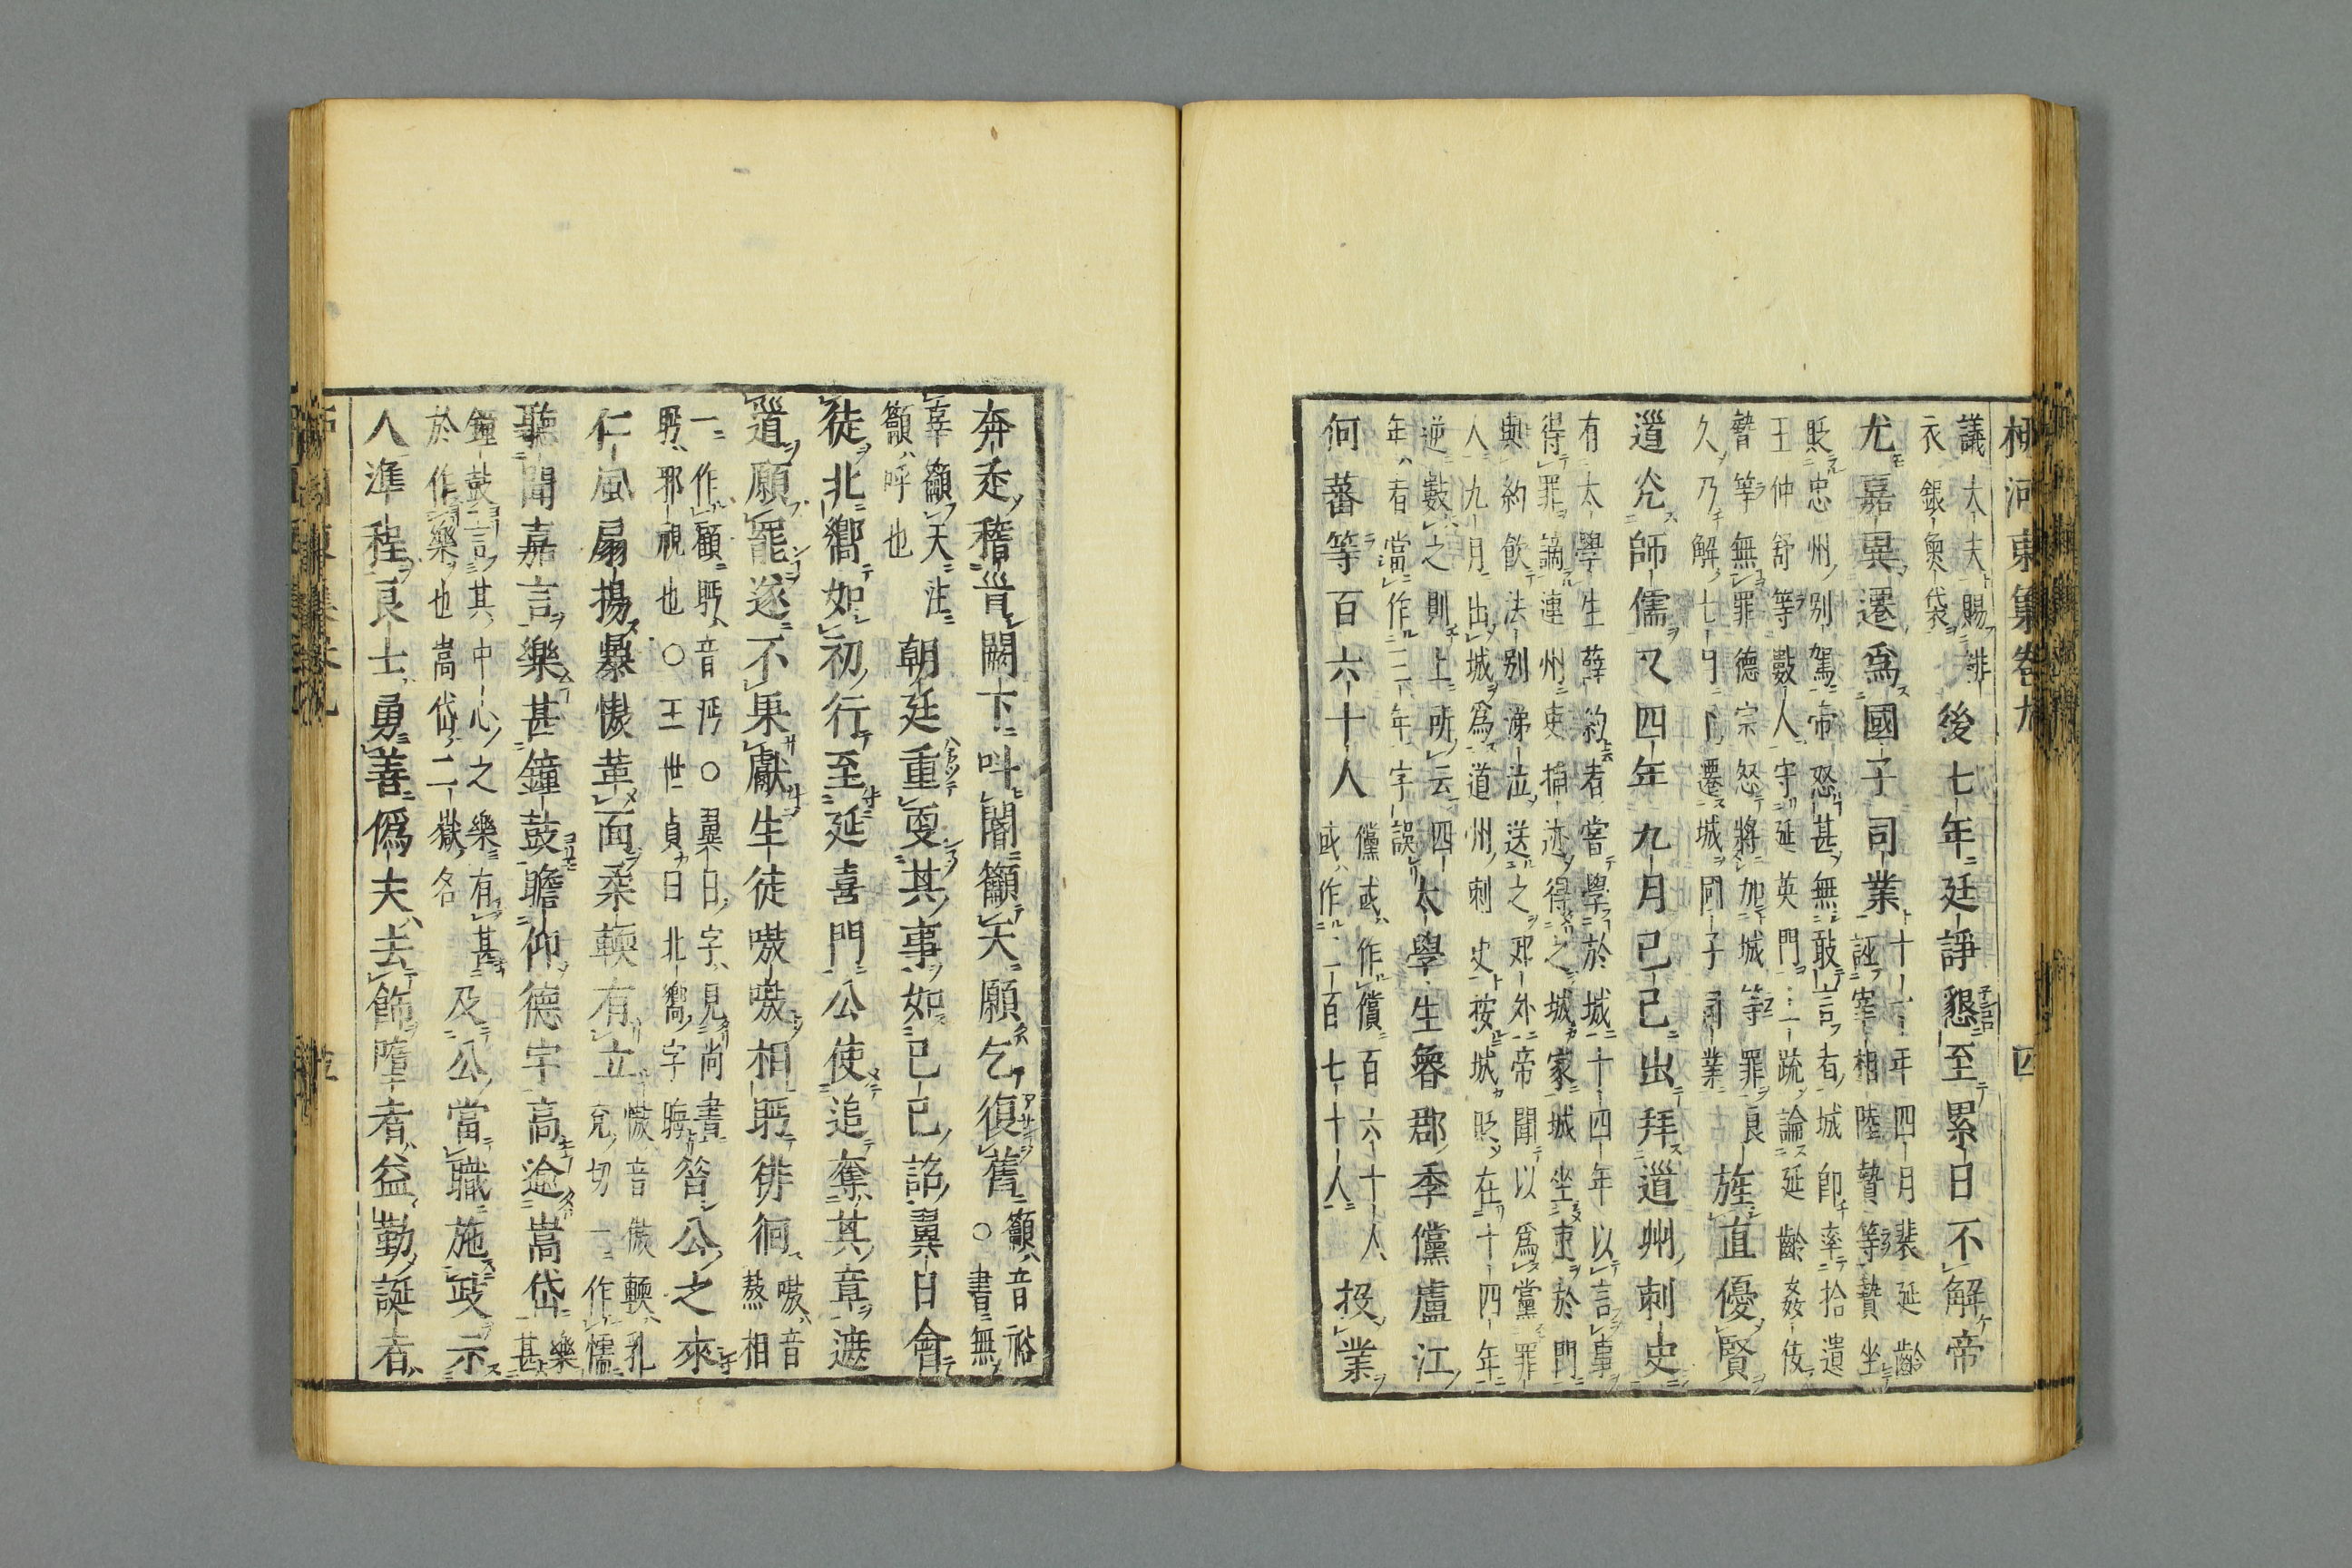 柳河東集卷九 四
議大夫賜緋
衣銀魚袋
後七年廷諍懇至累日不解帝
尤嘉異遷爲國子司業
十一年四月裴延齡
誣宰相陸贄等贄坐
貶忠州別駕帝怒甚無敢言者城即率拾遺
王仲舒等數人守延英門上疏論延齡姦佞
贄等無罪德宗怒將加城等罪良
久乃解七月遷城國子司業
旌直優賢
道光師儒又四年九月己巳出拜道州刺史
有太學生薛約者嘗學於城十四年以言事
得罪謫連州吏捕迹得之城家城坐吏於門
與約飲決別涕泣送之郊外帝聞以爲黨罪
人九月出城爲道州刺史按城貶在十四年
逆數之則上所云四
年者當作三年字誤
太學生魯郡季儻廬江
何蕃等百六十人
儻或作償百六十人
或作二百七十人
投業
奔走稽首闕下叫閽籲天願乞復舊
籲音裕
○書無
辜籲天注
籲呼也
朝廷重更其事如己巳詔翼日會
徒北嚮如初行至延喜門公使追奪其章遮
道願罷遂不果獻生徒嗷嗷相眄徘徊
嗷音
熬相
一作顧眄音沔○翼日字見尚書
眄邪視也○王世貞曰北嚮字晦
咎公之來
仁風扇揚暴慠革面柔輭有立
慠音傲輭乳
兗切一作懦
聽聞嘉言樂甚鐘鼓瞻仰德宇高逾嵩岱
樂
甚
鐘鼓言其中心之樂有甚
於作樂也嵩岱二嶽名
及公當職施政示
人準程良士勇善僞夫去飾墮者益勤誕者